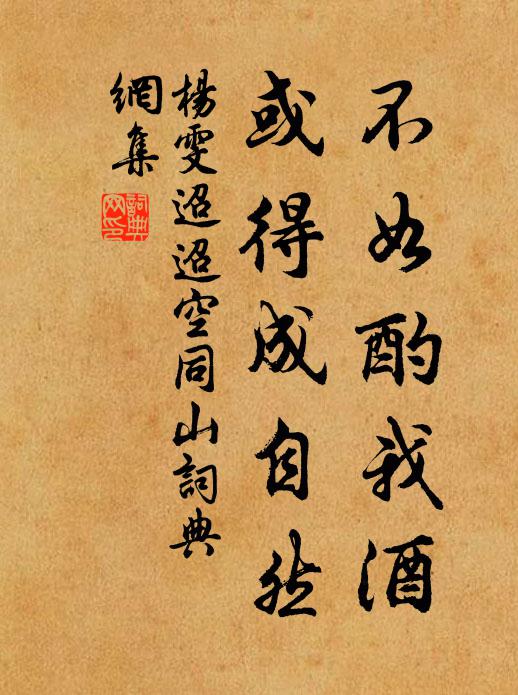 不如酌我酒
或得成自然
楊雯迢迢空同山詞典
網集
詞典網印